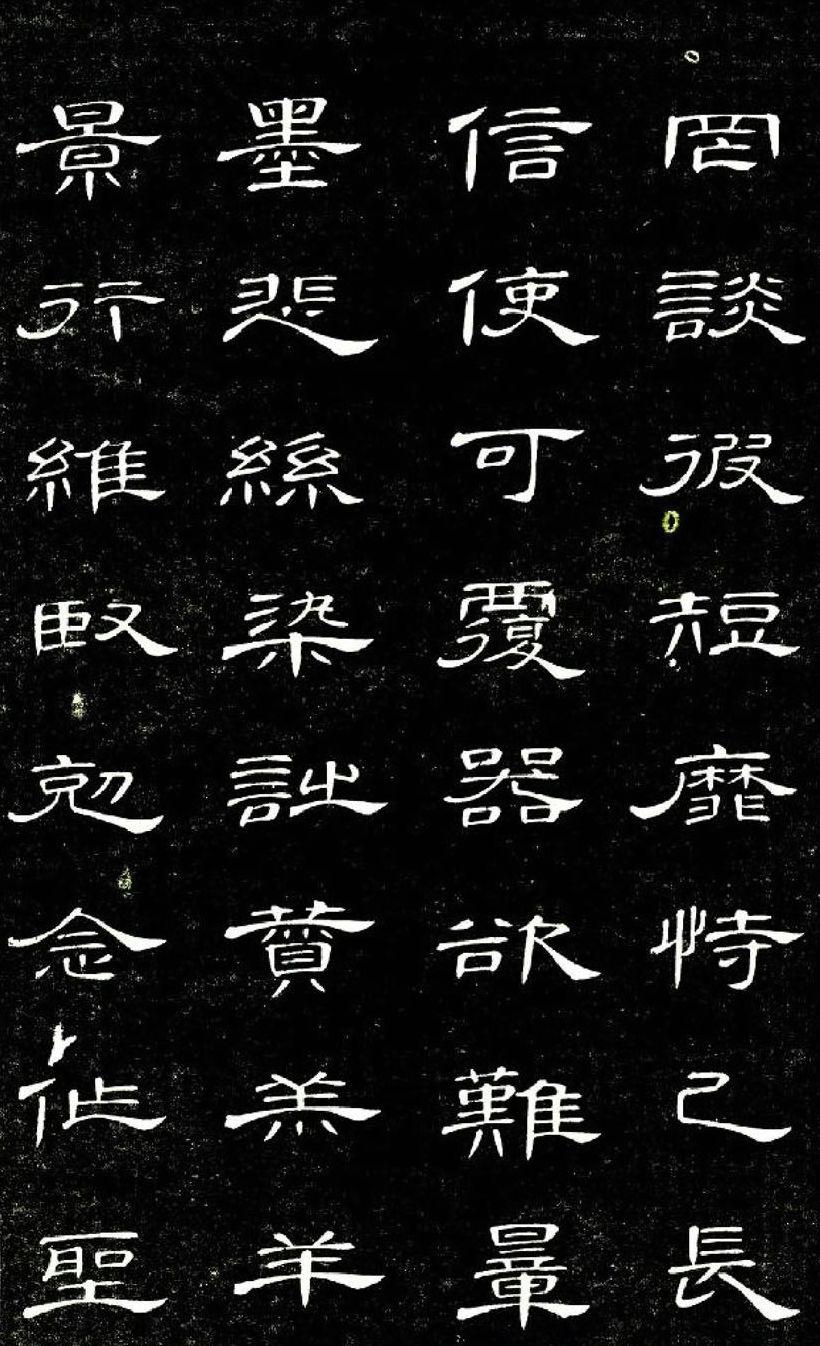 罔談彼短靡恃己長
信使可覆器欲難量
墨悲絲染詩贊羔羊
景行維賢剋念作聖